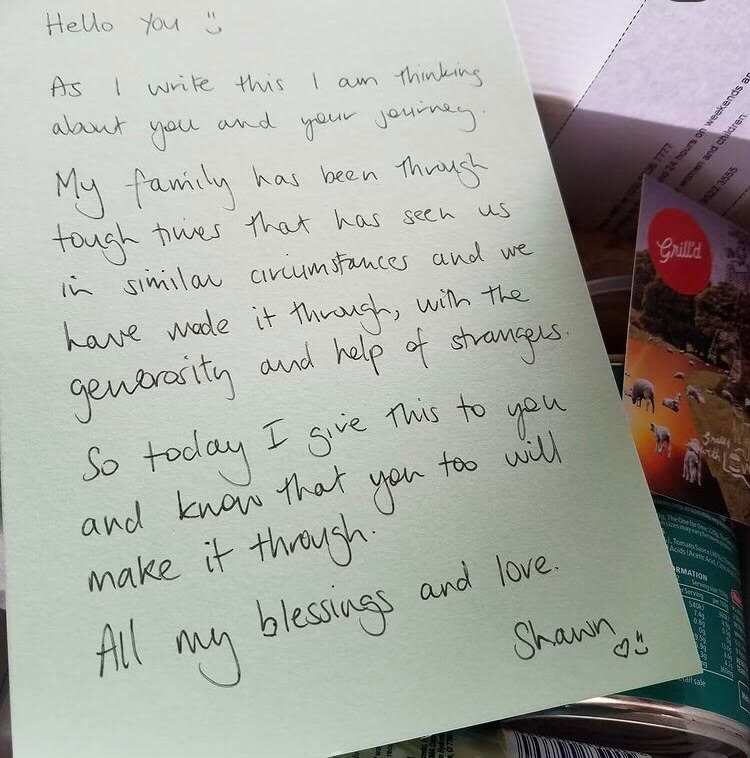 Hello You
As I write this I am thinking
about you and your journey.
My family has been through
tough times that has seen us
in similar circumstances and we
have made it through, with the
generosity and help of strangers.
So today I give this to you
and know that you too will
make it through.
All my blessings and love.
Shawn
7777
24 hours on weekends
women and children
3555
Grill'd
Tomato Sauce
Acids (Acetic Acid,